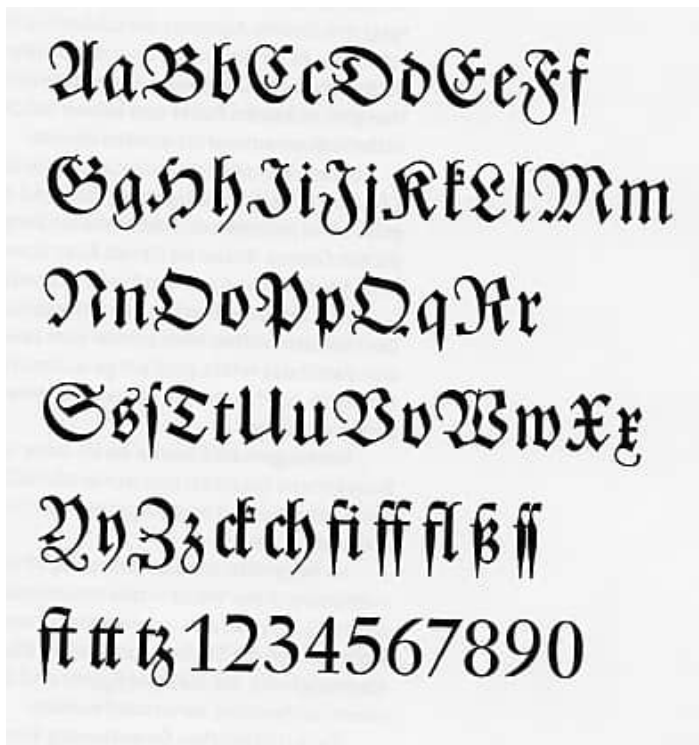 AaBbCcDdEeFf
GgHhIiJjKkLlMm
NnOoPpQqRr
SsſTtUuVvWwXx
YyZz ck ch fi ff fl ß ſſ
ſt tt tz 1234567890